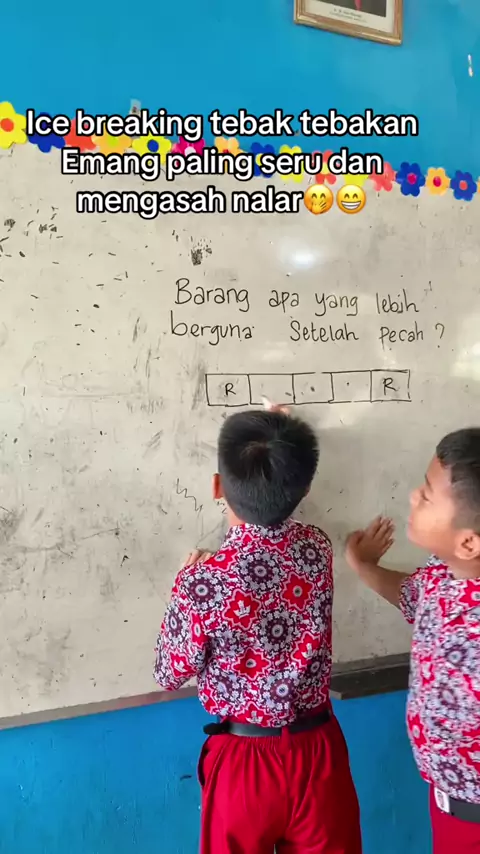 Ice breaking tebak tebakan
Emang paling seru dan
mengasah nalar🤭😁
Barang apa yang lebih
berguna Setelah pecah ?
R . . . R